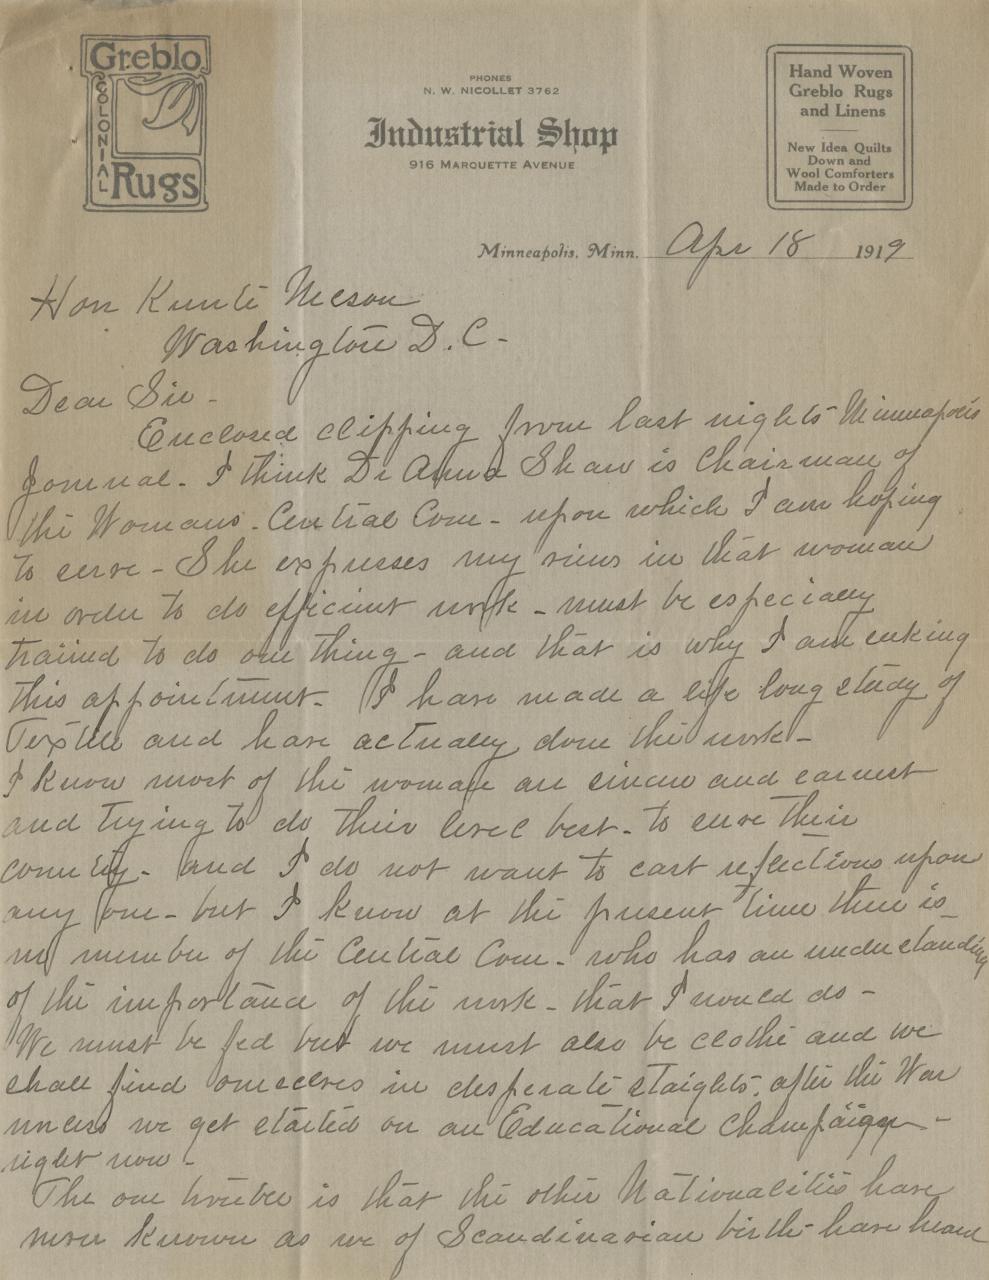 Greblo
COLONIAL
Rugs
PHONES
N. W. NICOLLET 3762
Industrial Shop
916 MARQUETTE AVENUE
Hand Woven
Greblo Rugs
and Linens
New Idea Quilts
Down and
Wool Comforters
Made to Order
Minneapolis, Minn. Apr 18 1919
Hon Kunte Nelson
Washington D.C-
Dear Sir -
Enclosed clipping from last nights Minneapolis
Jornual - I think Dr Anna Shaw is Chairman of
the Womans - Central Com - upon which I am hoping
to serve - She expresses my views in that woman
in order to do efficient work - must be especially
trained to do one thing - and that is why I am seeking
this appointment - I have made a life long study of
Textile and have actually done the work -
I know most of the woman are sincere and earnest
and trying to do their level best - to serve their
country - and I do not want to cast reflections upon
any one - but I know at the present time there is
no member of the Central Com - who has an understanding
of the importance of the work - that I would do -
We must be fed but we must also be clothe and we
shall find ourselves in desperate staights, after the War
unless we get started on an Educational Champaign -
right now -
The one trouble is that the other Nationalities have
never known as we of Scandinavian birth have heard